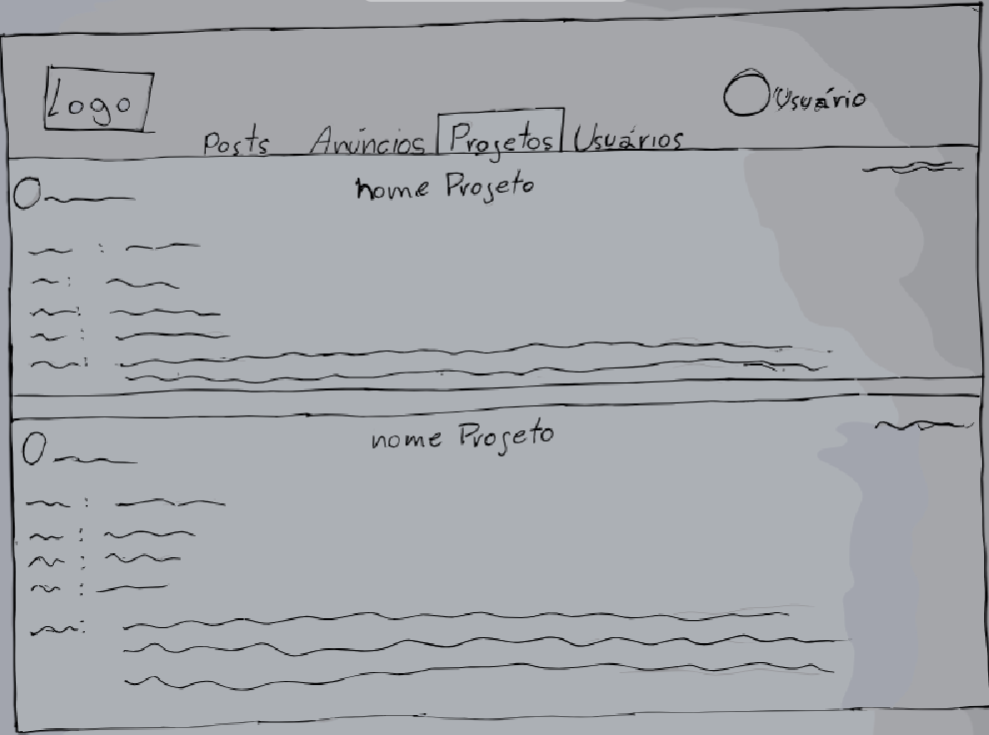 Logo
Usuário
Posts Anúncios Projetos Usuários
nome Projeto
nome Projeto